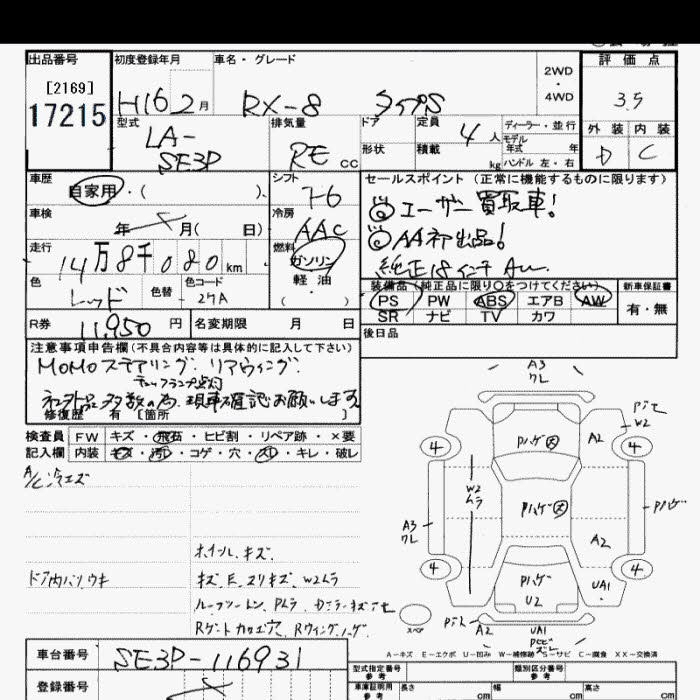 出品番号 初度登録年月 車名・グレード 評価点
[2169]
17215
H16 2月 RX-8 タイプS 2WD・4WD 3.5
型式 排気量 ドア 定員 4人 ディーラー・並行 外装 内装
LA- 形状 積載 kg モデル年式 年 D C
SE3P RE cc ハンドル 左・右
車歴 シフト セールスポイント (正常に機能するものに限ります)
自家用・( )、 F6 ◎ユーザー買取車!
車検 冷房
年 月( 日) AAC ◎AA初出品!
走行 燃料
14万8千080km ガソリン 純正18インチAW
色 色替 色コード 軽油 装備品(純正品に限り○をつけてください) 新車保証書
レッド 27A ・( ) PS PW ABS エアB AW 有・無
SR ナビ TV カワ
R券 11,950円 名変期限 月 日 後日品
注意事項申告欄(不具合内容等は具体的に記入して下さい)
MOMOステアリング リアウィング
チェックランプ点灯
社外品多数の為 現車確認お願いします
修復歴 有 [箇所
検査員 FW キズ・飛石・ヒビ割・リペア跡・×要
記入欄 内装 キズ・汚レ・コゲ・穴・スレ・キレ・破レ
A/C冷エズ
ホイール キズ
ドア内バリウキ キズ、E、スリキズ、W2ムラ
A3
クレ
W2
4 Pハゲ大 A2 4
W2
ムラ Pハゲ大 Pハゲ
A3
クレ A2
4 Pハゲ 4
U2 UA1
スペア A2 UA1
A−キズ E−エクボ U−凹み W−補修跡 S−サビ C−腐食 XX−交換済
車台番号 SE3P-116931
登録番号
型式指定番号 参考 類別区分番号 参考
車庫証明用 参考 長さ cm 幅 cm 高さ cm